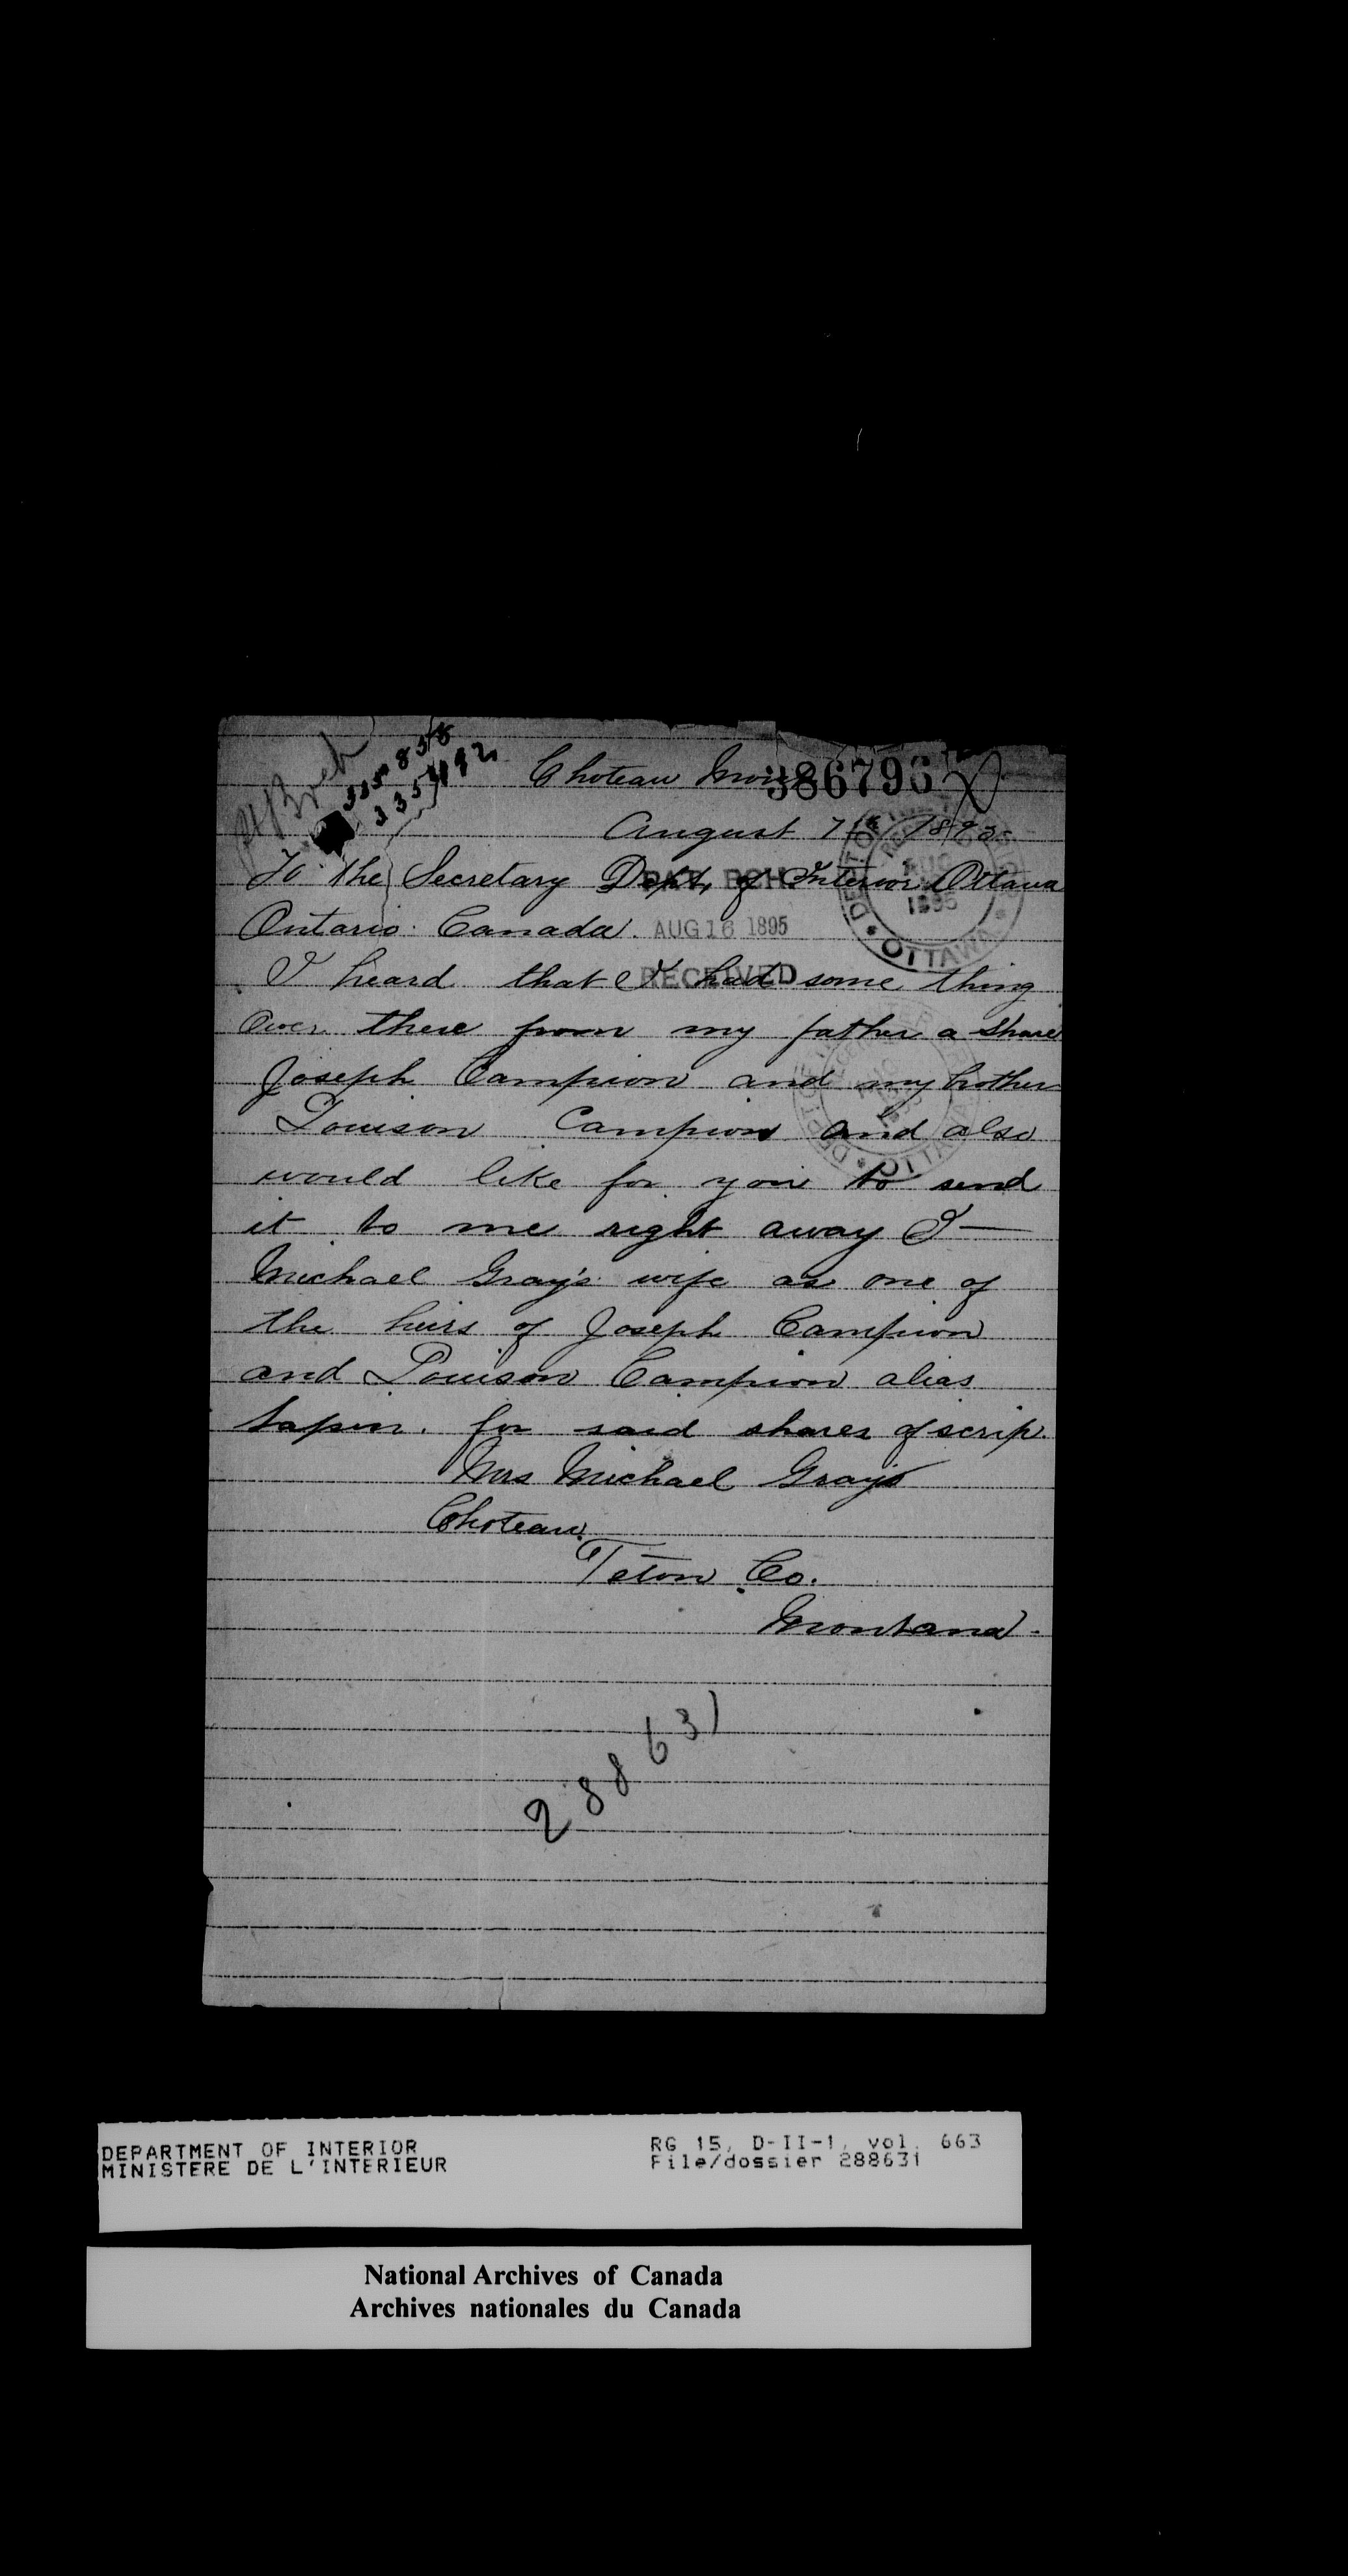 Choteau Mont
386796
August 7th 1895
To the Secretary Dept. of Interior Ottawa
Ontario. Canada.
PAT. BCH.
AUG 16 1895
RECEIVED
DEPT OF
OTTAWA
1895
I heard that I had some thing
over there from my father a share
Joseph Campion and my brother
Louison Campion and also
would like for you to send
it to me right away I —
Michael Gray's wife as one of
the heirs of Joseph Campion
and Louison Campion alias
for said shares of scrip.
Mrs Michael Gray's
Choteau.
Teton Co.
Montana.
288631
DEPARTMENT OF INTERIOR
MINISTERE DE L'INTERIEUR
RG 15, D-II-1, vol. 663
File/dossier 288631
National Archives of Canada
Archives nationales du Canada